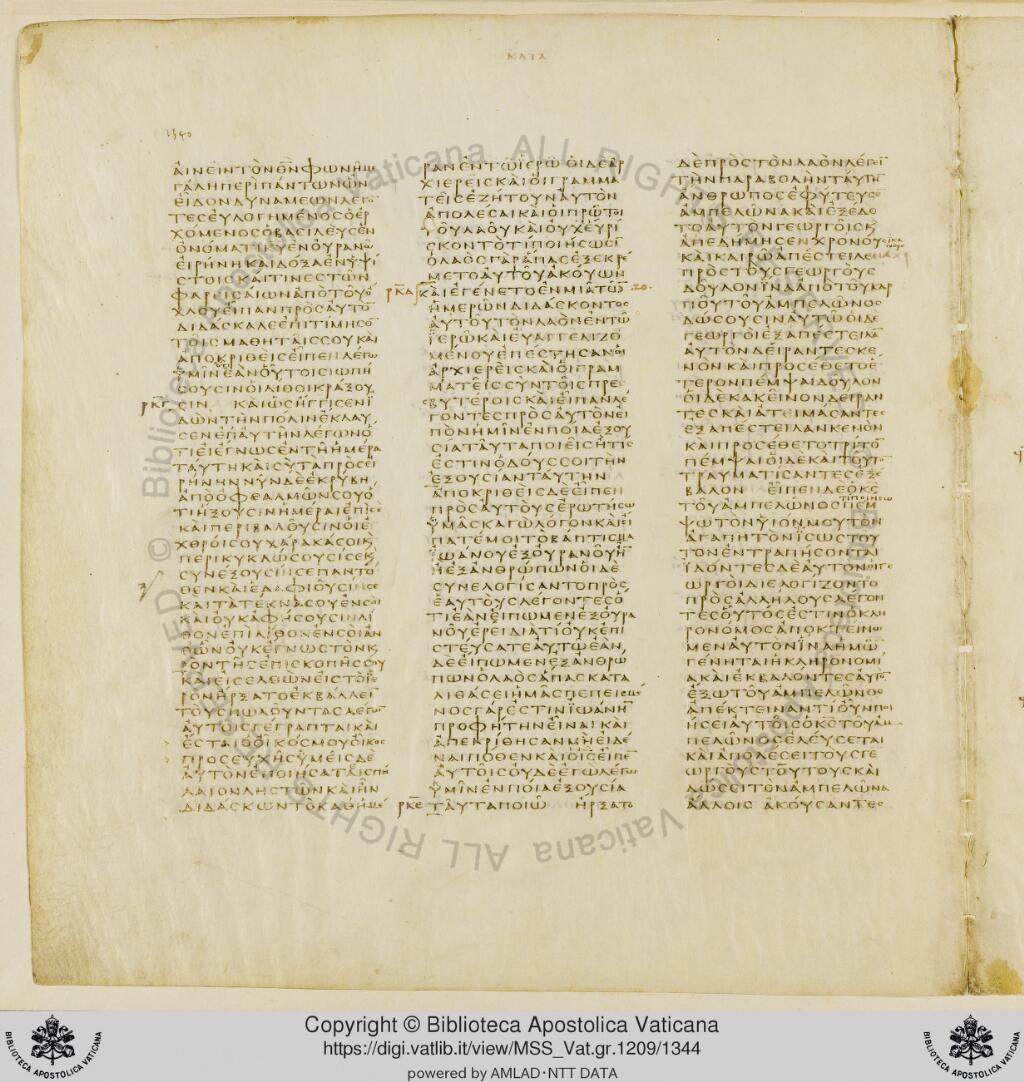 ΚΑΤΑ
1340
ΑΙΝΕΙΝΤΟΝΘΝΦΩΝΗΜΕ
ΓΑΛΗΠΕΡΙΠΑΝΤΩΝΩΝ
ΕΙΔΟΝΔΥΝΑΜΕΩΝΛΕΓΟ
ΤΕϹΕΥΛΟΓΗΜΕΝΟϹΟΕΡ
ΧΟΜΕΝΟϹΟΒΑϹΙΛΕΥϹΕΝ
ΟΝΟΜΑΤΙΚΥΕΝΟΥΡΑΝΩ
ΕΙΡΗΝΗΚΑΙΔΟΞΑΕΝΥΨΙ
ϹΤΟΙϹΚΑΙΤΙΝΕϹΤΩΝ
ΦΑΡΙϹΑΙΩΝΑΠΟΤΟΥΟ
ΧΛΟΥΕΙΠΑΝΠΡΟϹΑΥΤΟ
ΔΙΔΑϹΚΑΛΕΕΠΙΤΙΜΗϹΟ
ΤΟΙϹΜΑΘΗΤΑΙϹϹΟΥΚΑΙ
ΑΠΟΚΡΙΘΕΙϹΕΙΠΕΝΛΕΓΩ
ΥΜΙΝΕΑΝΟΥΤΟΙϹΙΩΠΗ
ϹΟΥϹΙΝΟΙΛΙΘΟΙΚΡΑΞΟΥ
ρκγ ϹΙΝ ΚΑΙΩϹΗΓΓΙϹΕΝΙ
ΔΩΝΤΗΝΠΟΛΙΝΕΚΛΑΥ
ϹΕΝΕΠΑΥΤΗΝΛΕΓΩΝΟ
ΤΙΕΙΕΓΝΩϹΕΝΤΗΗΜΕΡΑ
ΤΑΥΤΗΚΑΙϹΥΤΑΠΡΟϹΕΙ
ΡΗΝΗΝΝΥΝΔΕΕΚΡΥΒΗ
ΑΠΟΟΦΘΑΛΜΩΝϹΟΥΟ
ΤΙΗΞΟΥϹΙΝΗΜΕΡΑΙΕΠΙϹΕ
ΚΑΙΠΕΡΙΒΑΛΟΥϹΙΝΟΙΕ
ΧΘΡΟΙϹΟΥΧΑΡΑΚΑϹΟΙΚ
ΠΕΡΙΚΥΚΛΩϹΟΥϹΙϹΕΚ
ϹΥΝΕΞΟΥϹΙΝϹΕΠΑΝΤΟ
ΘΕΝΚΑΙΕΔΑΦΙΟΥϹΙΝϹΕ
ΚΑΙΤΑΤΕΚΝΑϹΟΥΕΝϹΟΙ
ΚΑΙΟΥΚΑΦΗϹΟΥϹΙΝΛΙ
ΘΟΝΕΠΙΛΙΘΟΝΕΝϹΟΙΑΝ
ΘΩΝΟΥΚΕΓΝΩϹΤΟΝΚ
ΡΟΝΤΗϹΕΠΙϹΚΟΠΗϹϹΟΥ
ΚΑΙΕΙϹΕΛΘΩΝΕΙϹΤΟΙΕ
ΡΟΝΗΡΞΑΤΟΕΚΒΑΛΛΕΙ
ΤΟΥϹΠΩΛΟΥΝΤΑϹΛΕΓΩ
ΑΥΤΟΙϹΓΕΓΡΑΠΤΑΙΚΑΙ
ΕϹΤΑΙΟΟΙΚΟϹΜΟΥΟΙΚΟϹ
ΠΡΟϹΕΥΧΗϹΥΜΕΙϹΔΕ
ΑΥΤΟΝΕΠΟΙΗϹΑΤΑΙϹΠΗ
ΛΑΙΟΝΛΗϹΤΩΝΚΑΙΗΝ
ΔΙΔΑϹΚΩΝΤΟΚΑΘΗΜΕ
ΡΑΝΕΝΤΩΙΕΡΩ ΟΙΔΕΑΡ
ΧΙΕΡΕΙϹΚΑΙΟΙΓΡΑΜΜΑ
ΤΕΙϹΕΖΗΤΟΥΝΑΥΤΟΝ
ΑΠΟΛΕϹΑΙΚΑΙΟΙΠΡΩΤΟΙ
ΤΟΥΛΑΟΥΚΑΙΟΥΧΕΥΡΙ
ϹΚΟΝΤΟΤΙΠΟΙΗϹΩϹΙ
ΟΛΑΟϹΓΑΡΑΠΑϹΕΞΕΚΡΕ
ΜΕΤΟΑΥΤΟΥΑΚΟΥΩΝ
ρκδ ΚΑΙΕΓΕΝΕΤΟΕΝΜΙΑΤΩΝ 20.
ΗΜΕΡΩΝΔΙΔΑϹΚΟΝΤΟϹ
ΑΥΤΟΥΤΟΝΛΑΟΝΕΝΤΩ
ΙΕΡΩΚΑΙΕΥΑΓΓΕΛΙΖΟ
ΜΕΝΟΥΕΠΕϹΤΗϹΑΝΟΙ
ΑΡΧΙΕΡΕΙϹΚΑΙΟΙΓΡΑΜ
ΜΑΤΕΙϹϹΥΝΤΟΙϹΠΡΕ
ϹΒΥΤΕΡΟΙϹΚΑΙΕΙΠΑΝΛΕ
ΓΟΝΤΕϹΠΡΟϹΑΥΤΟΝΕΙ
ΠΟΝΗΜΙΝΕΝΠΟΙΑΕΞΟΥ
ϹΙΑΤΑΥΤΑΠΟΙΕΙϹΗΤΙϹ
ΕϹΤΙΝΟΔΟΥϹϹΟΙΤΗΝ
ΕΞΟΥϹΙΑΝΤΑΥΤΗΝ
ΑΠΟΚΡΙΘΕΙϹΔΕΕΙΠΕΝ
ΠΡΟϹΑΥΤΟΥϹΕΡΩΤΗϹΩ
ΥΜΑϹΚΑΓΩΛΟΓΟΝΚΑΙΕΙ
ΠΑΤΕΜΟΙΤΟΒΑΠΤΙϹΜΑ
ΙΩΑΝΟΥΕΞΟΥΡΑΝΟΥΗΝ
ΗΕΞΑΝΘΡΩΠΩΝΟΙΔΕ
ϹΥΝΕΛΟΓΙϹΑΝΤΟΠΡΟϹ
ΕΑΥΤΟΥϹΛΕΓΟΝΤΕϹΟ
ΤΙΕΑΝΕΙΠΩΜΕΝΕΞΟΥΡΑ
ΝΟΥΕΡΕΙΔΙΑΤΙΟΥΚΕΠΙ
ϹΤΕΥϹΑΤΕΑΥΤΩΕΑΝ
ΔΕΕΙΠΩΜΕΝΕΞΑΝΘΡΩ
ΠΩΝΟΛΑΟϹΑΠΑϹΚΑΤΑ
ΛΙΘΑϹΕΙΗΜΑϹΠΕΠΕΙϹΜΕ
ΝΟϹΓΑΡΕϹΤΙΝΙΩΑΝΗ
ΠΡΟΦΗΤΗΝΕΙΝΑΙΚΑΙ
ΑΠΕΚΡΙΘΗϹΑΝΜΗΕΙΔΕ
ΝΑΙΠΟΘΕΝΚΑΙΟΙϹΕΙΠΕ
ΑΥΤΟΙϹΟΥΔΕΕΓΩΛΕΓΩ
ΥΜΙΝΕΝΠΟΙΑΕΞΟΥϹΙΑ
ρκε ΤΑΥΤΑΠΟΙΩ ΗΡΞΑΤΟ
ΔΕΠΡΟϹΤΟΝΛΑΟΝΛΕΓΕΙ
ΤΗΝΠΑΡΑΒΟΛΗΝΤΑΥΤΗ
ΑΝΘΡΩΠΟϹΕΦΥΤΕΥϹΕ
ΑΜΠΕΛΩΝΑΚΑΙΕΞΕΔΕ
ΤΟΑΥΤΟΝΓΕΩΡΓΟΙϹΚ
ΑΠΕΔΗΜΗϹΕΝΧΡΟΝΟΥϹ
ΚΑΙΚΑΙΡΩΑΠΕϹΤΕΙΛΕ
ΠΡΟϹΤΟΥϹΓΕΩΡΓΟΥϹ
ΔΟΥΛΟΝΙΝΑΑΠΟΤΟΥΚΑΡ
ΠΟΥΤΟΥΑΜΠΕΛΩΝΟϹ
ΔΩϹΟΥϹΙΝΑΥΤΩΟΙΔΕ
ΓΕΩΡΓΟΙΕΞΑΠΕϹΤΕΙΛΑ
ΑΥΤΟΝΔΕΙΡΑΝΤΕϹΚΕ
ΝΟΝΚΑΙΠΡΟϹΕΘΕΤΟΕ
ΤΕΡΟΝΠΕΜΨΑΙΔΟΥΛΟΝ
ΟΙΔΕΚΑΚΕΙΝΟΝΔΕΙΡΑΝ
ΤΕϹΚΑΙΑΤΕΙΜΑϹΑΝΤΕϹ
ΕΞΑΠΕϹΤΕΙΛΑΝΚΕΝΟΝ
ΚΑΙΠΡΟϹΕΘΕΤΟΤΡΙΤΟ
ΠΕΜΨΑΙΟΙΔΕΚΑΙΤΟΥΤ
ΤΡΑΥΜΑΤΙϹΑΝΤΕϹΕΞΕ
ΒΑΛΟΝ ΕΙΠΕΝΔΕΟΚϹ
ΤΟΥΑΜΠΕΛΩΝΟϹΤΙΠΟΙΗϹΩΠΕΜ
ΨΩΤΟΝΥΙΟΝΜΟΥΤΟΝ
ΑΓΑΠΗΤΟΝΙϹΩϹΤΟΥ
ΤΟΝΕΝΤΡΑΠΗϹΟΝΤΑΙ
ΙΔΟΝΤΕϹΔΕΑΥΤΟΝΟΙΓΕ
ΩΡΓΟΙΔΙΕΛΟΓΙΖΟΝΤΟ
ΠΡΟϹΑΛΛΗΛΟΥϹΛΕΓΟΝ
ΤΕϹΟΥΤΟϹΕϹΤΙΝΟΚΛΗ
ΡΟΝΟΜΟϹΑΠΟΚΤΕΙΝΩ
ΜΕΝΑΥΤΟΝΙΝΑΗΜΩ
ΓΕΝΗΤΑΙΗΚΛΗΡΟΝΟΜΙ
ΑΚΑΙΕΚΒΑΛΟΝΤΕϹΑΥΤΟ
ΕΞΩΤΟΥΑΜΠΕΛΩΝΟϹ
ΑΠΕΚΤΕΙΝΑΝΤΙΟΥΝΠΟΙ
ΗϹΕΙΑΥΤΟΙϹΟΚϹΤΟΥΑΜ
ΠΕΛΩΝΟϹΕΛΕΥϹΕΤΑΙ
ΚΑΙΑΠΟΛΕϹΕΙΤΟΥϹΓΕ
ΩΡΓΟΥϹΤΟΥΤΟΥϹΚΑΙ
ΔΩϹΕΙΤΟΝΑΜΠΕΛΩΝΑ
ΑΛΛΟΙϹ ΑΚΟΥϹΑΝΤΕϹ
Copyright © Biblioteca Apostolica Vaticana
https://digi.vatlib.it/view/MSS_Vat.gr.1209/1344
powered by AMLAD·NTT DATA